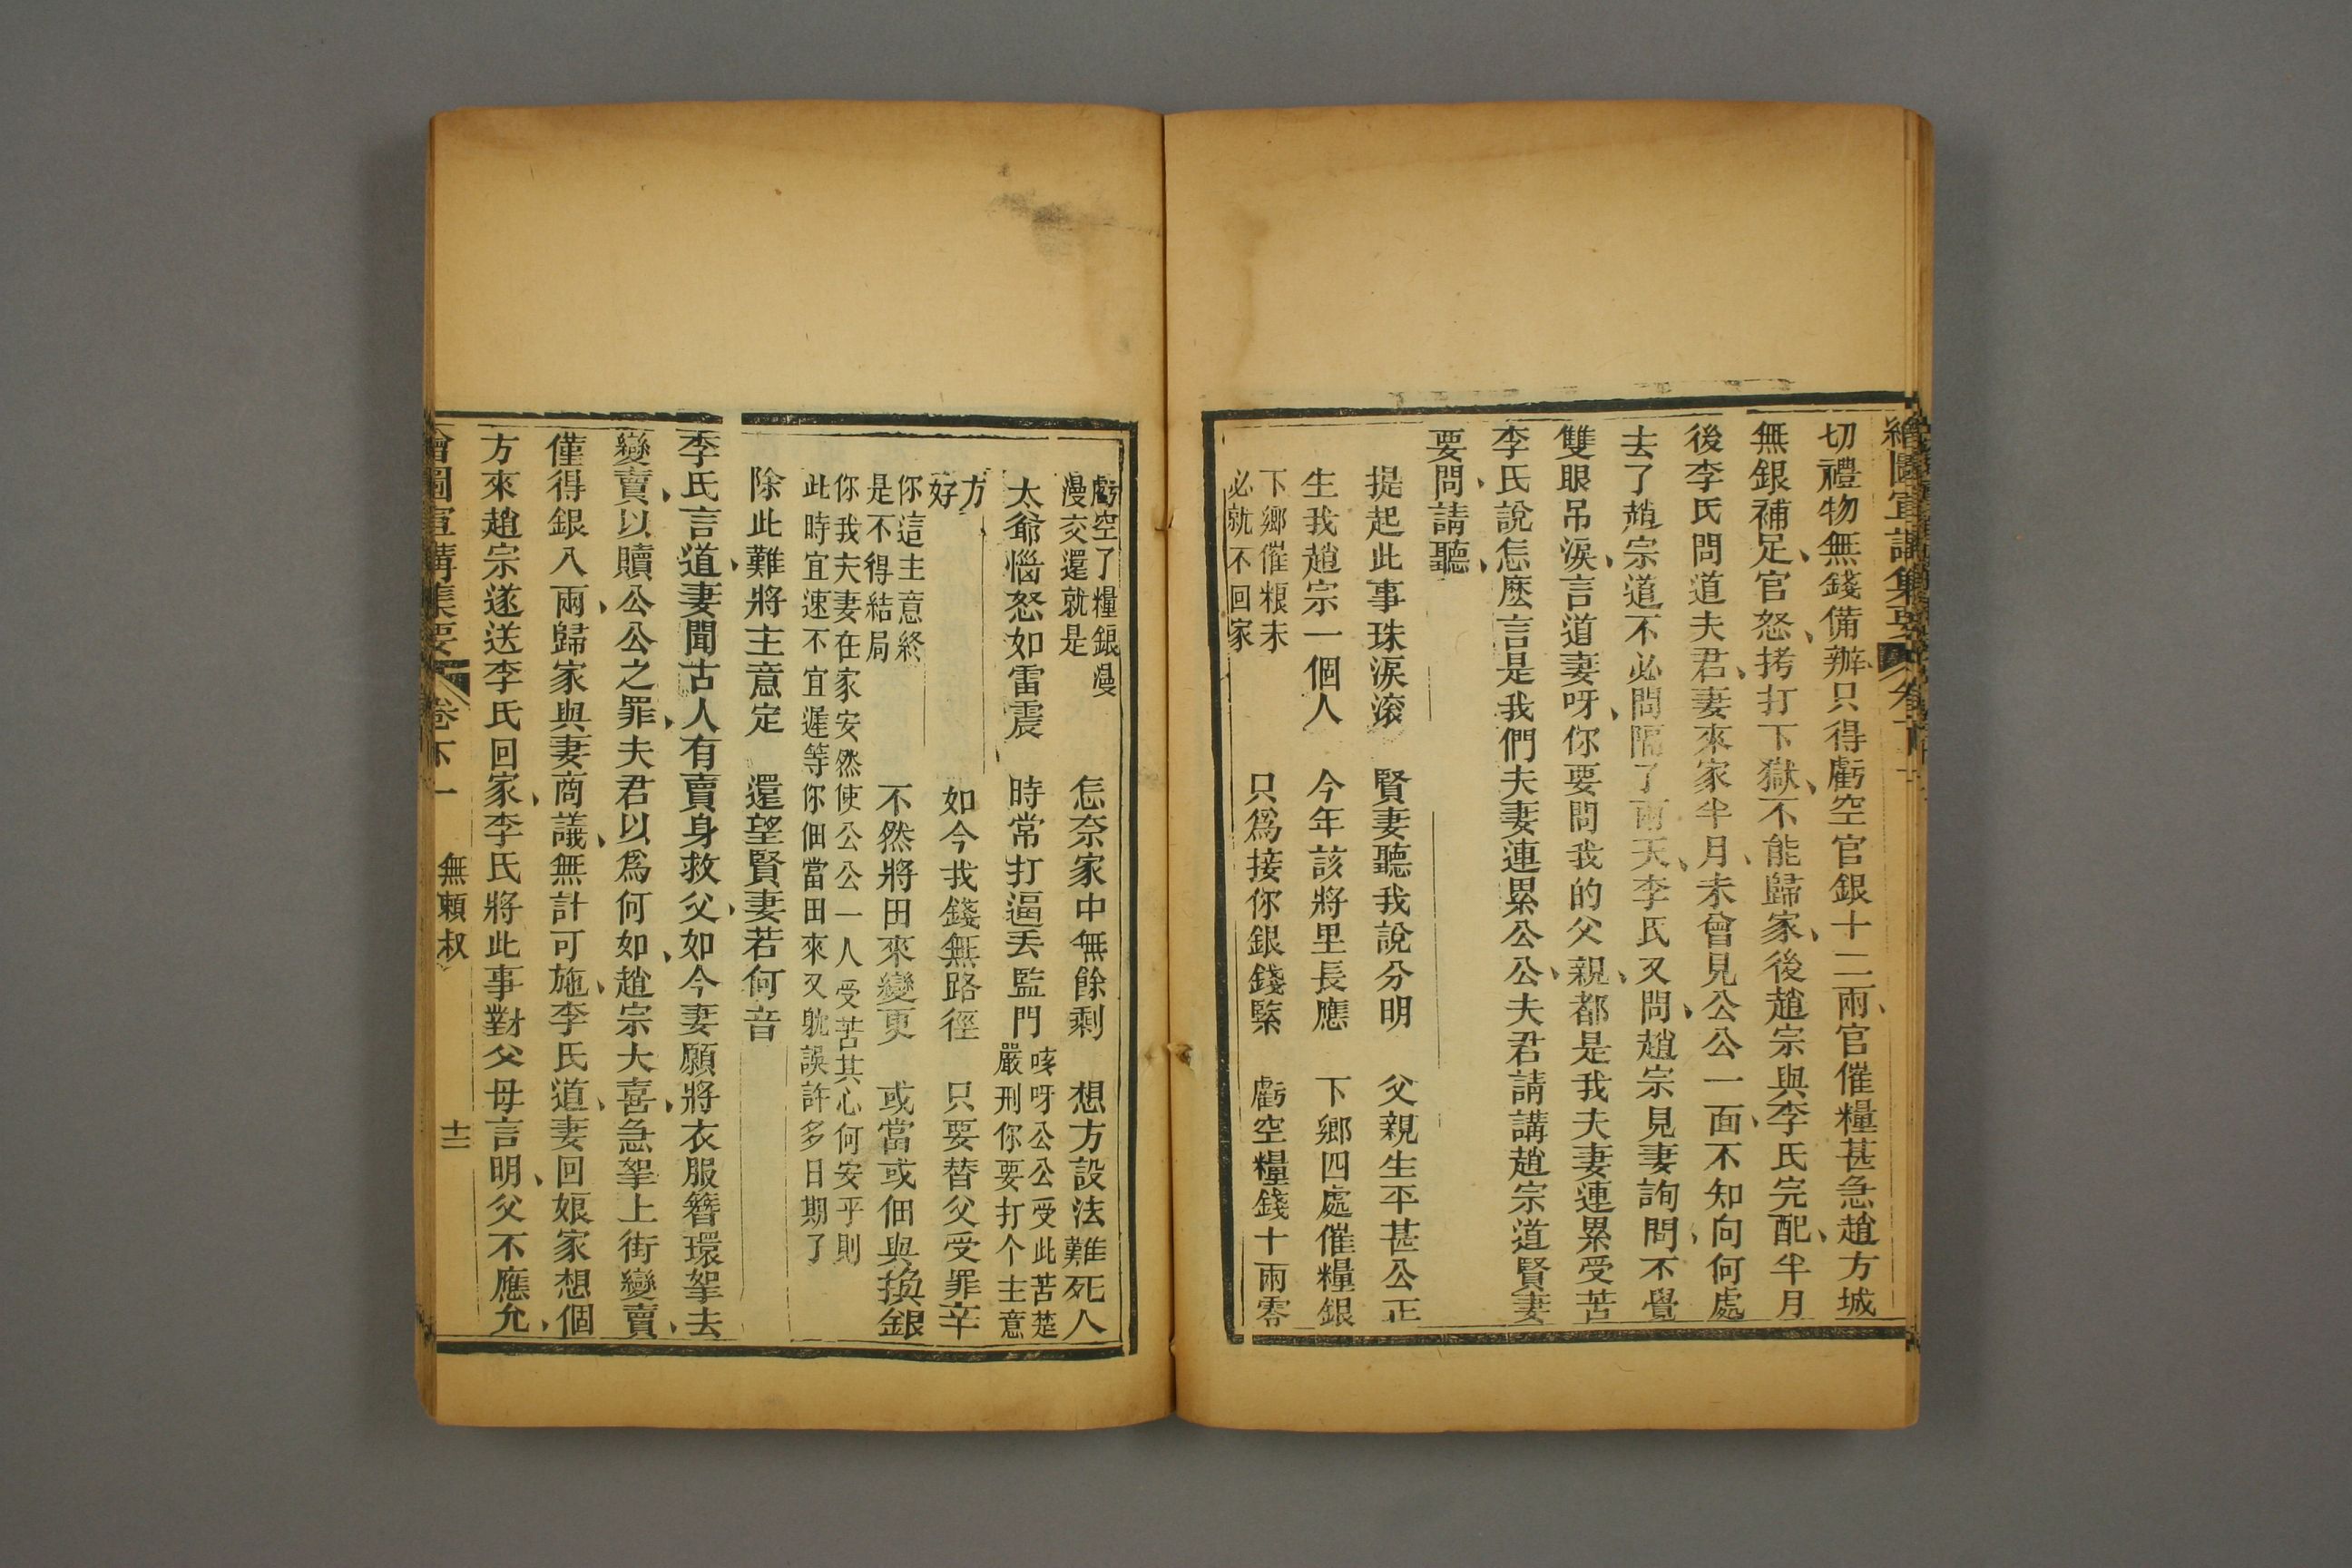 繪圖宣講集要
切禮物無錢備辦只得虧空官銀十二兩、官催糧甚急趙方城
無銀補足、官怒、拷打下獄、不能歸家、後趙宗與李氏完配、半月
後李氏問道夫君、妻來家半月、未曾見公公一面、不知向何處
去了趙宗道不必問隔了兩天、李氏又問、趙宗見妻詢問、不覺
雙眼吊淚、言道妻呀、你要問我的父親、都是我夫妻連累受苦
李氏說怎麽言是我們夫妻連累公公、夫君請講趙宗道賢妻
要問、請聽、
提起此事珠淚滾 賢妻聽我說分明 父親生平甚公正
生我趙宗一個人 今年該將里長應 下鄉四處催糧銀
下鄉催粮未
必就不回家 只爲接你銀錢緊 虧空糧錢十兩零
虧空了糧銀漫
漫交還就是 怎奈家中無餘剩 想方設法難死人
太爺惱怒如雷震 時常打逼丟監門 咳呀公公受此苦楚
嚴刑你要打个主意
方
好 如今我錢無路徑 只要替父受罪辛
你這主意終
是不得結局 不然將田來變更 或當或佃與換銀
你我夫妻在家安然使公公一人受苦其心何安乎則
此時宜速不宜遲等你佃當田來又躭誤許多日期了
除此難將主意定 還望賢妻若何音
李氏言道、妻聞古人有賣身救父、如今妻願將衣服簪環挐去
變賣、以贖公公之罪、夫君以爲何如、趙宗大喜、急挐上街變賣、
僅得銀八兩、歸家與妻商議、無計可施、李氏道、妻回娘家想個
方來趙宗遂送李氏回家、李氏將此事對父母言明、父不應允、
繪圖宣講集要 卷下一 無賴叔 十二